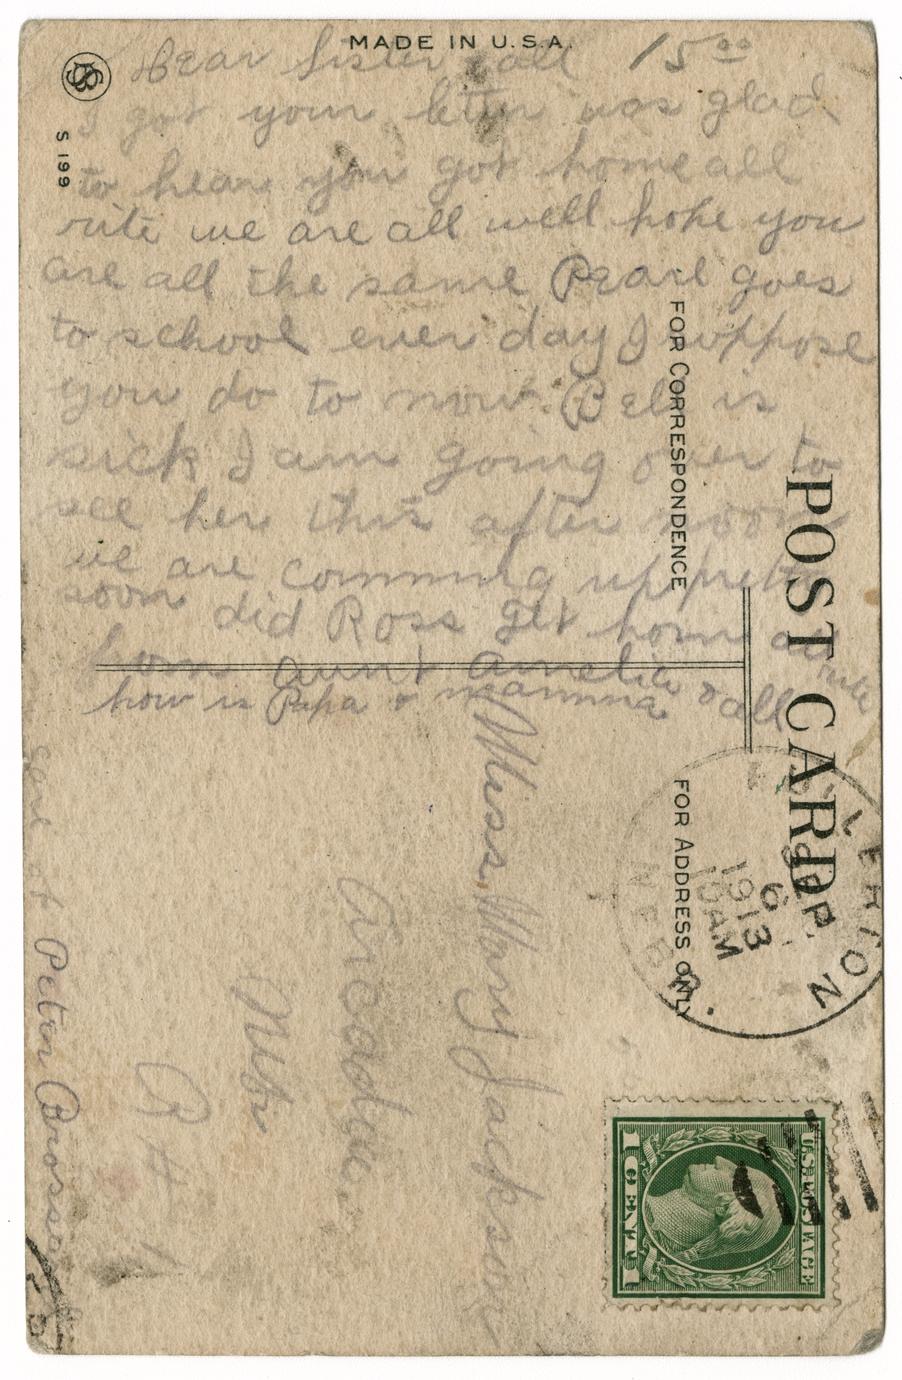 MADE IN U.S.A.
S 199
15.00
Dear Sister & all
I got your letter was glad
to hear you got home all
rite we are all well hope you
are all the same Pearl goes
to school ever day I suppose
you do to now. Bell is
sick I am going over to
see her this after noon
we are comming up pretty
soon did Ross get home al rite
from aunt Amelia & all
how is Papa & mamma
POST CARD
FOR CORRESPONDENCE
FOR ADDRESS ONLY
FULLERTON
SEP
6
10AM
1913
NEBR.
U.S. POSTAGE
1 CENT 1
Miss. Mary Jackson
Arcadia.
Nebr
R # 1
care of Peter